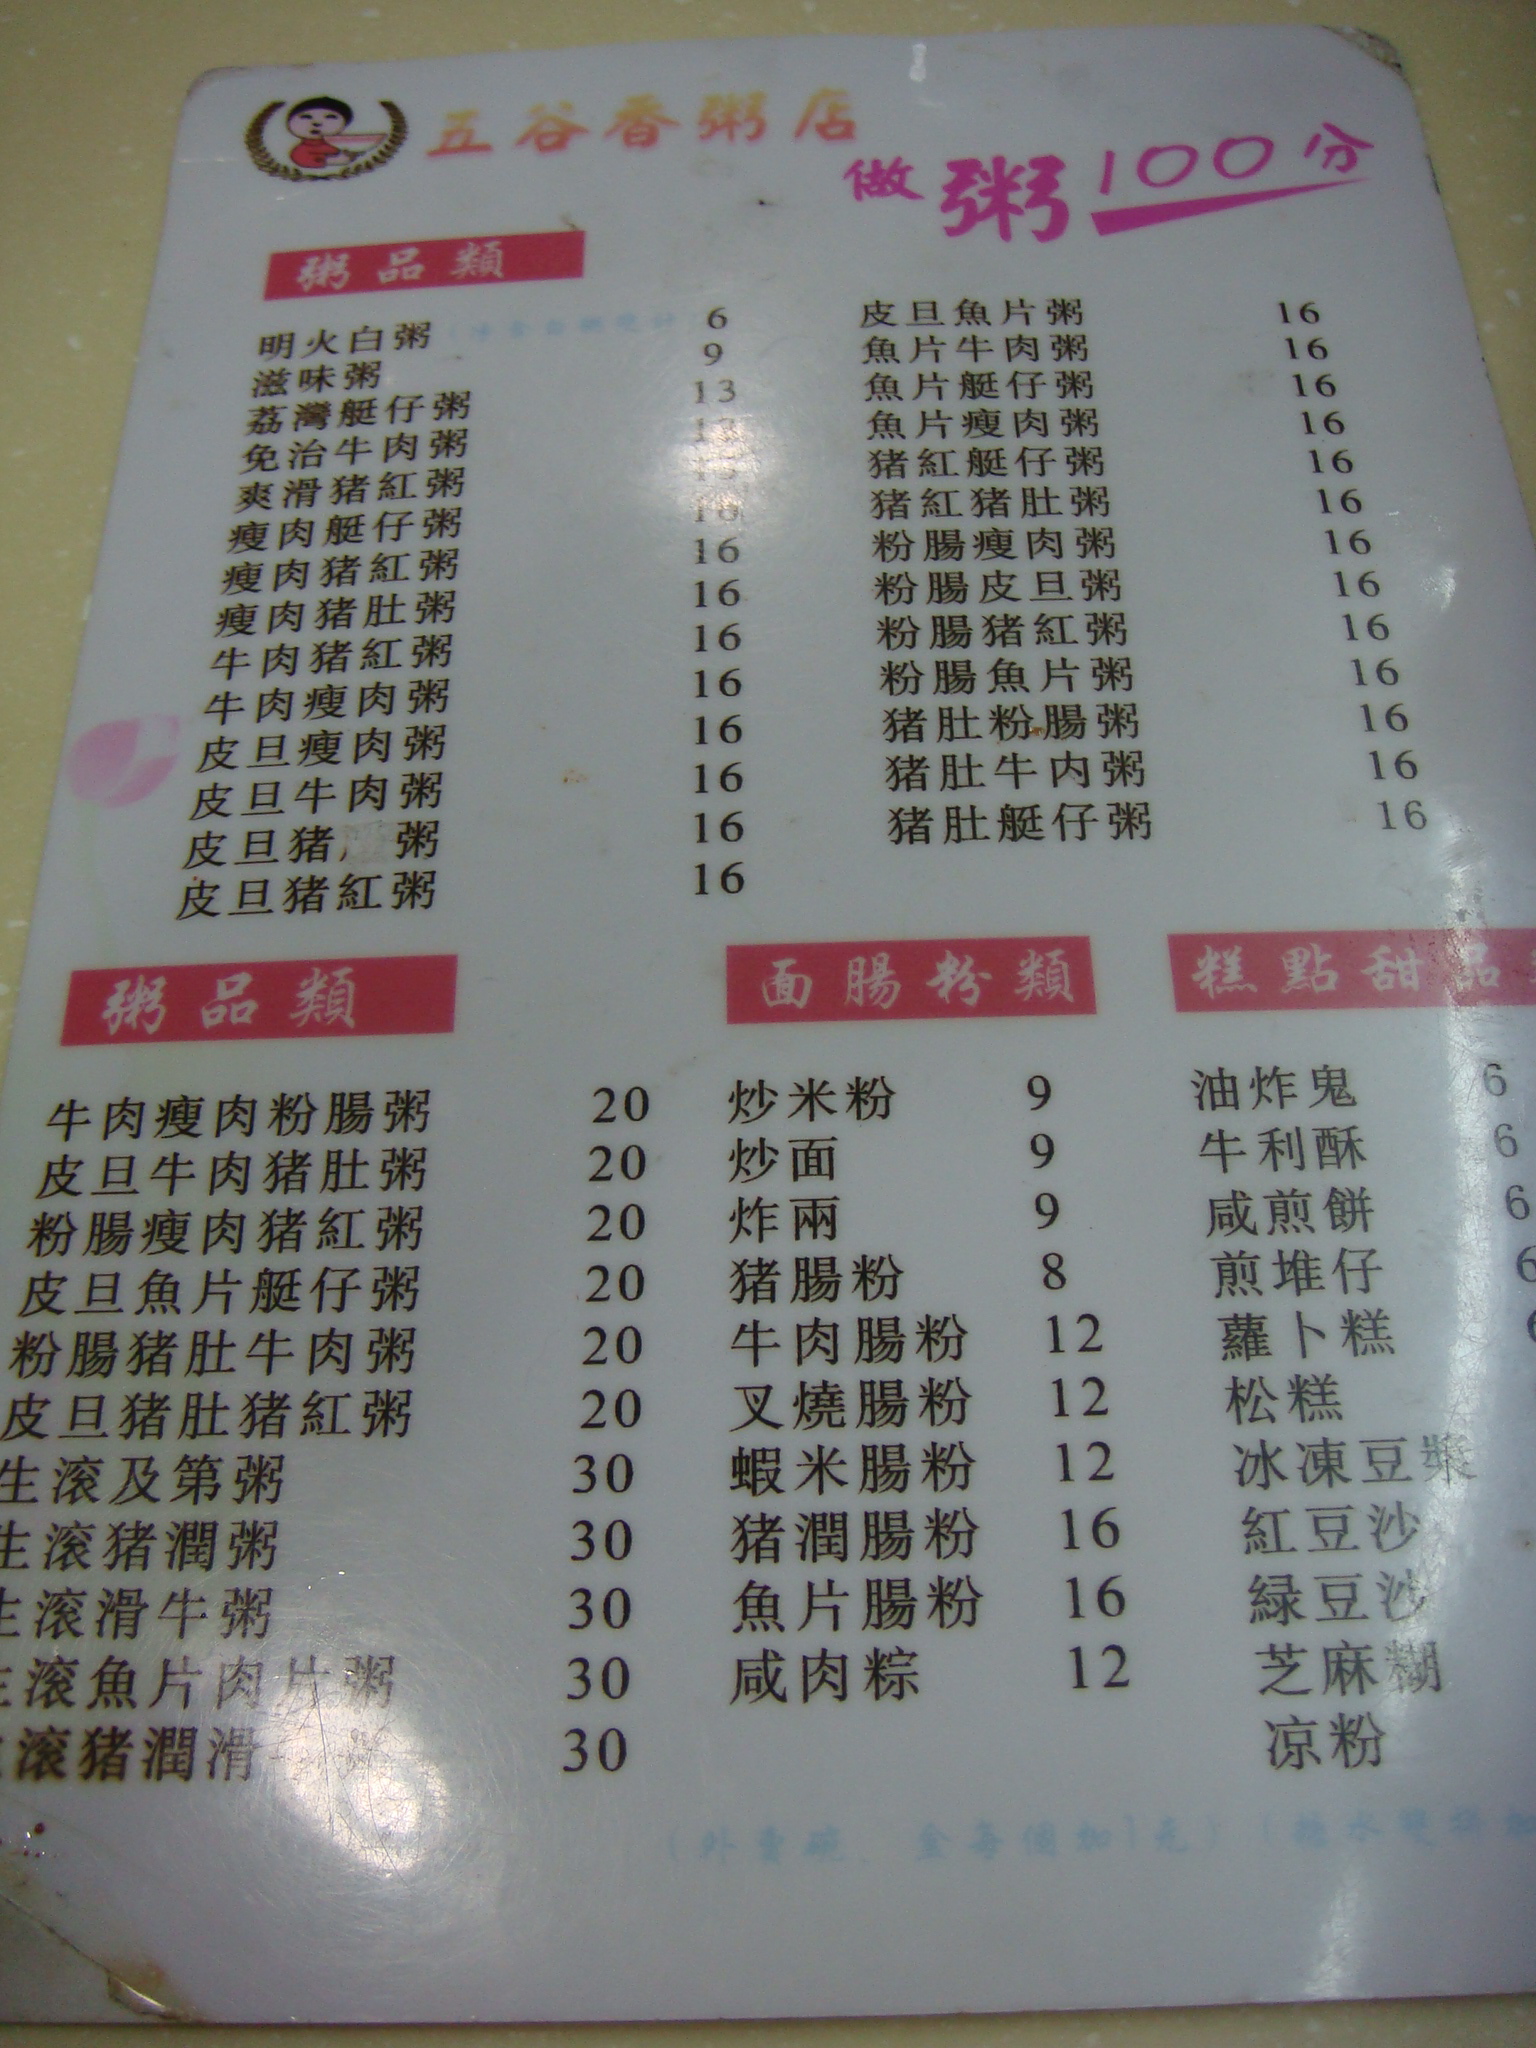 五谷香粥店
做粥100分
粥品類
明火白粥 6
滋味粥 9
荔灣艇仔粥 13
免治牛肉粥 13
爽滑猪紅粥 13
瘦肉艇仔粥 16
瘦肉猪紅粥 16
瘦肉猪肚粥 16
牛肉猪紅粥 16
牛肉瘦肉粥 16
皮旦瘦肉粥 16
皮旦牛肉粥 16
皮旦猪 粥 16
皮旦猪紅粥 16
皮旦魚片粥 16
魚片牛肉粥 16
魚片艇仔粥 16
魚片瘦肉粥 16
猪紅艇仔粥 16
猪紅猪肚粥 16
粉腸瘦肉粥 16
粉腸皮旦粥 16
粉腸猪紅粥 16
粉腸魚片粥 16
猪肚粉腸粥 16
猪肚牛内粥 16
猪肚艇仔粥 16
粥品類
牛肉瘦肉粉腸粥 20
皮旦牛肉猪肚粥 20
粉腸瘦肉猪紅粥 20
皮旦魚片艇仔粥 20
粉腸猪肚牛肉粥 20
皮旦猪肚猪紅粥 20
生滚及第粥 30
生滚猪潤粥 30
生滚滑牛粥 30
生滚魚片肉片粥 30
滚猪潤滑 30
面腸粉類
炒米粉 9
炒面 9
炸兩 9
猪腸粉 8
牛肉腸粉 12
叉燒腸粉 12
蝦米腸粉 12
猪潤腸粉 16
魚片腸粉 16
咸肉粽 12
糕點甜品
油炸鬼 6
牛利酥 6
咸煎餅 6
煎堆仔 6
蘿卜糕 6
松糕
冰凍豆漿
紅豆沙
緑豆沙
芝麻糊
凉粉
(外賣碗、盒每個加1元)